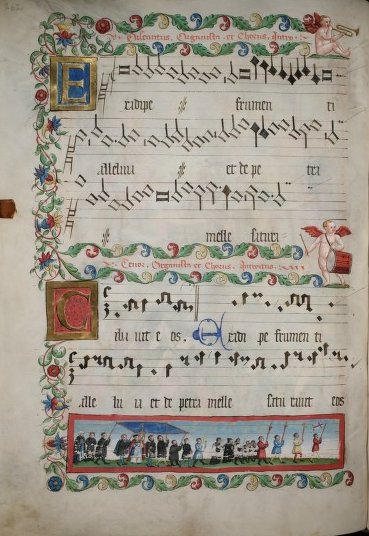 Discantus, Organista et Chorus, Intro:
E xadipe ij frumen ti
alleluia ij et de pe tra
ij melle satura
Tenor, Organista et Chorus, Introitus.
C ibauit e os, E xadi pe frumen ti
alle lu ia et de petra melle satu rauit eos